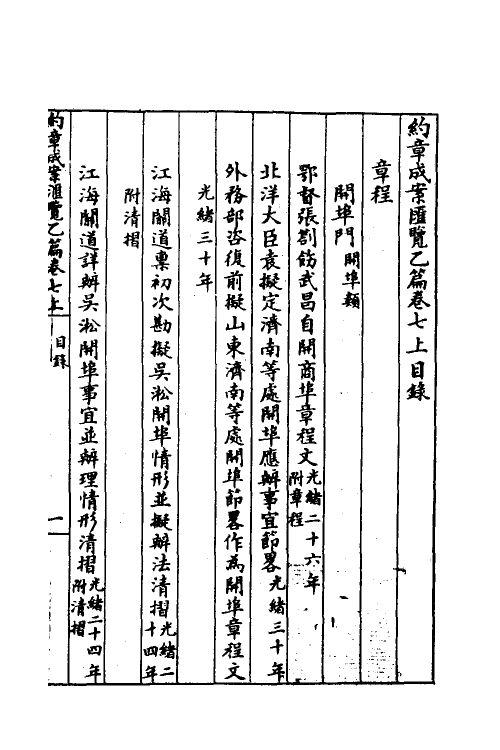 約章成案匯覽乙篇卷七上目錄
章程
開埠門 開埠類
鄂督張劄飭武昌自開商埠章程文 光緒二十六年 附章程
北洋大臣袁擬定濟南等處開埠應辦事宜節畧 光緒三十年
外務部咨復前擬山東濟南等處開埠節畧作為開埠章程文
光緒三十年
江海關道稟初次勘擬吳淞開埠情形並擬辦法清摺 光緒二十四年
附清摺
江海關道詳辦吳淞開埠事宜並辦理情形清摺 光緒二十四年 附清摺
約章成案匯覽乙篇卷七上 目錄 一